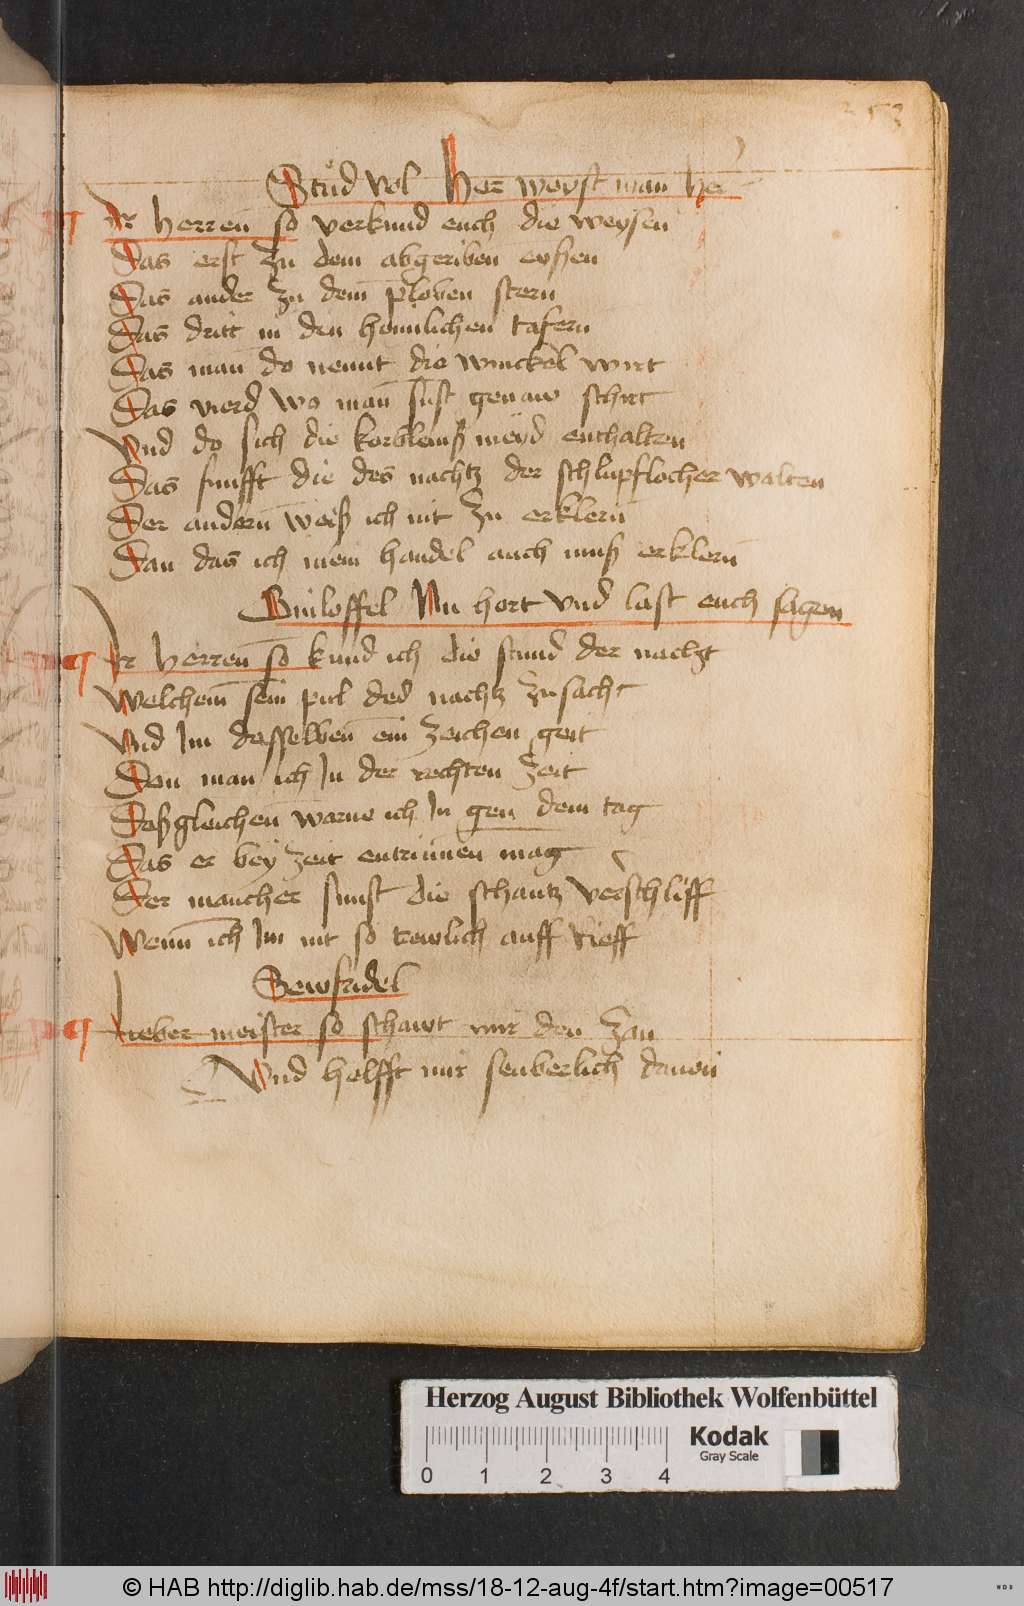 253
Stůd vol Her weyst man he
Ir herren so verkund euch die weysen
Das erst zu dem abgeriben eyßen
Das ander zu dem ploben stern
Das dritt in den heimlichen tafern
Das man do nennt die winckel wirt
Das vierd wo man sust genaw schirt
Vnd do sich die korbleins meyd enthalten
Das funfft die des nachtz der schlupflocher walten
Der andern weiß ich nit zu erklern
Dan das ich mein handel auch muß erklern
Nu hort vnd last euch sagen
Ir herren so kund ich die stund der nacht
Welchem sein pul des nachtz zusacht
Vnd Im desselben ein zeichen geit
Den man ich In der rechten zeit
Deßgleichen warne ich In gen dem tag
Das er bey zeit entrinnen mag
Der mancher sunst die schantz verschliff
Wenn ich Im nit so trewlich auff rieff
Sewfridel
Lieber meister so schawt mir den zan
Vnd helfft mir seuberlich davon
Herzog August Bibliothek Wolfenbüttel
Kodak
Gray Scale
0 1 2 3 4
© HAB http://diglib.hab.de/mss/18-12-aug-4f/start.htm?image=00517